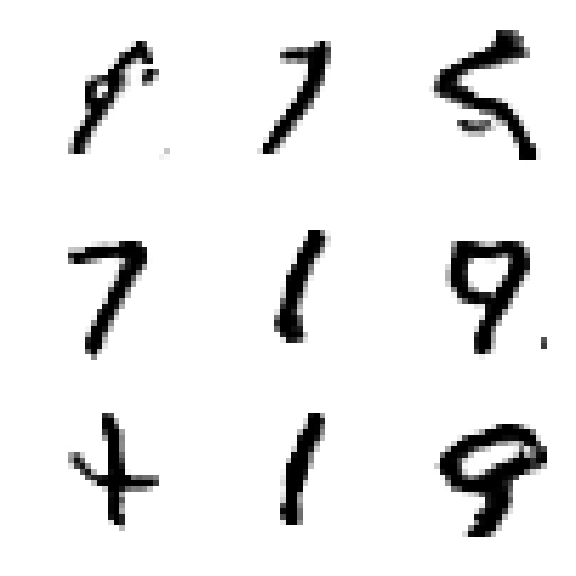 7 5
7 1 9
4 1 9